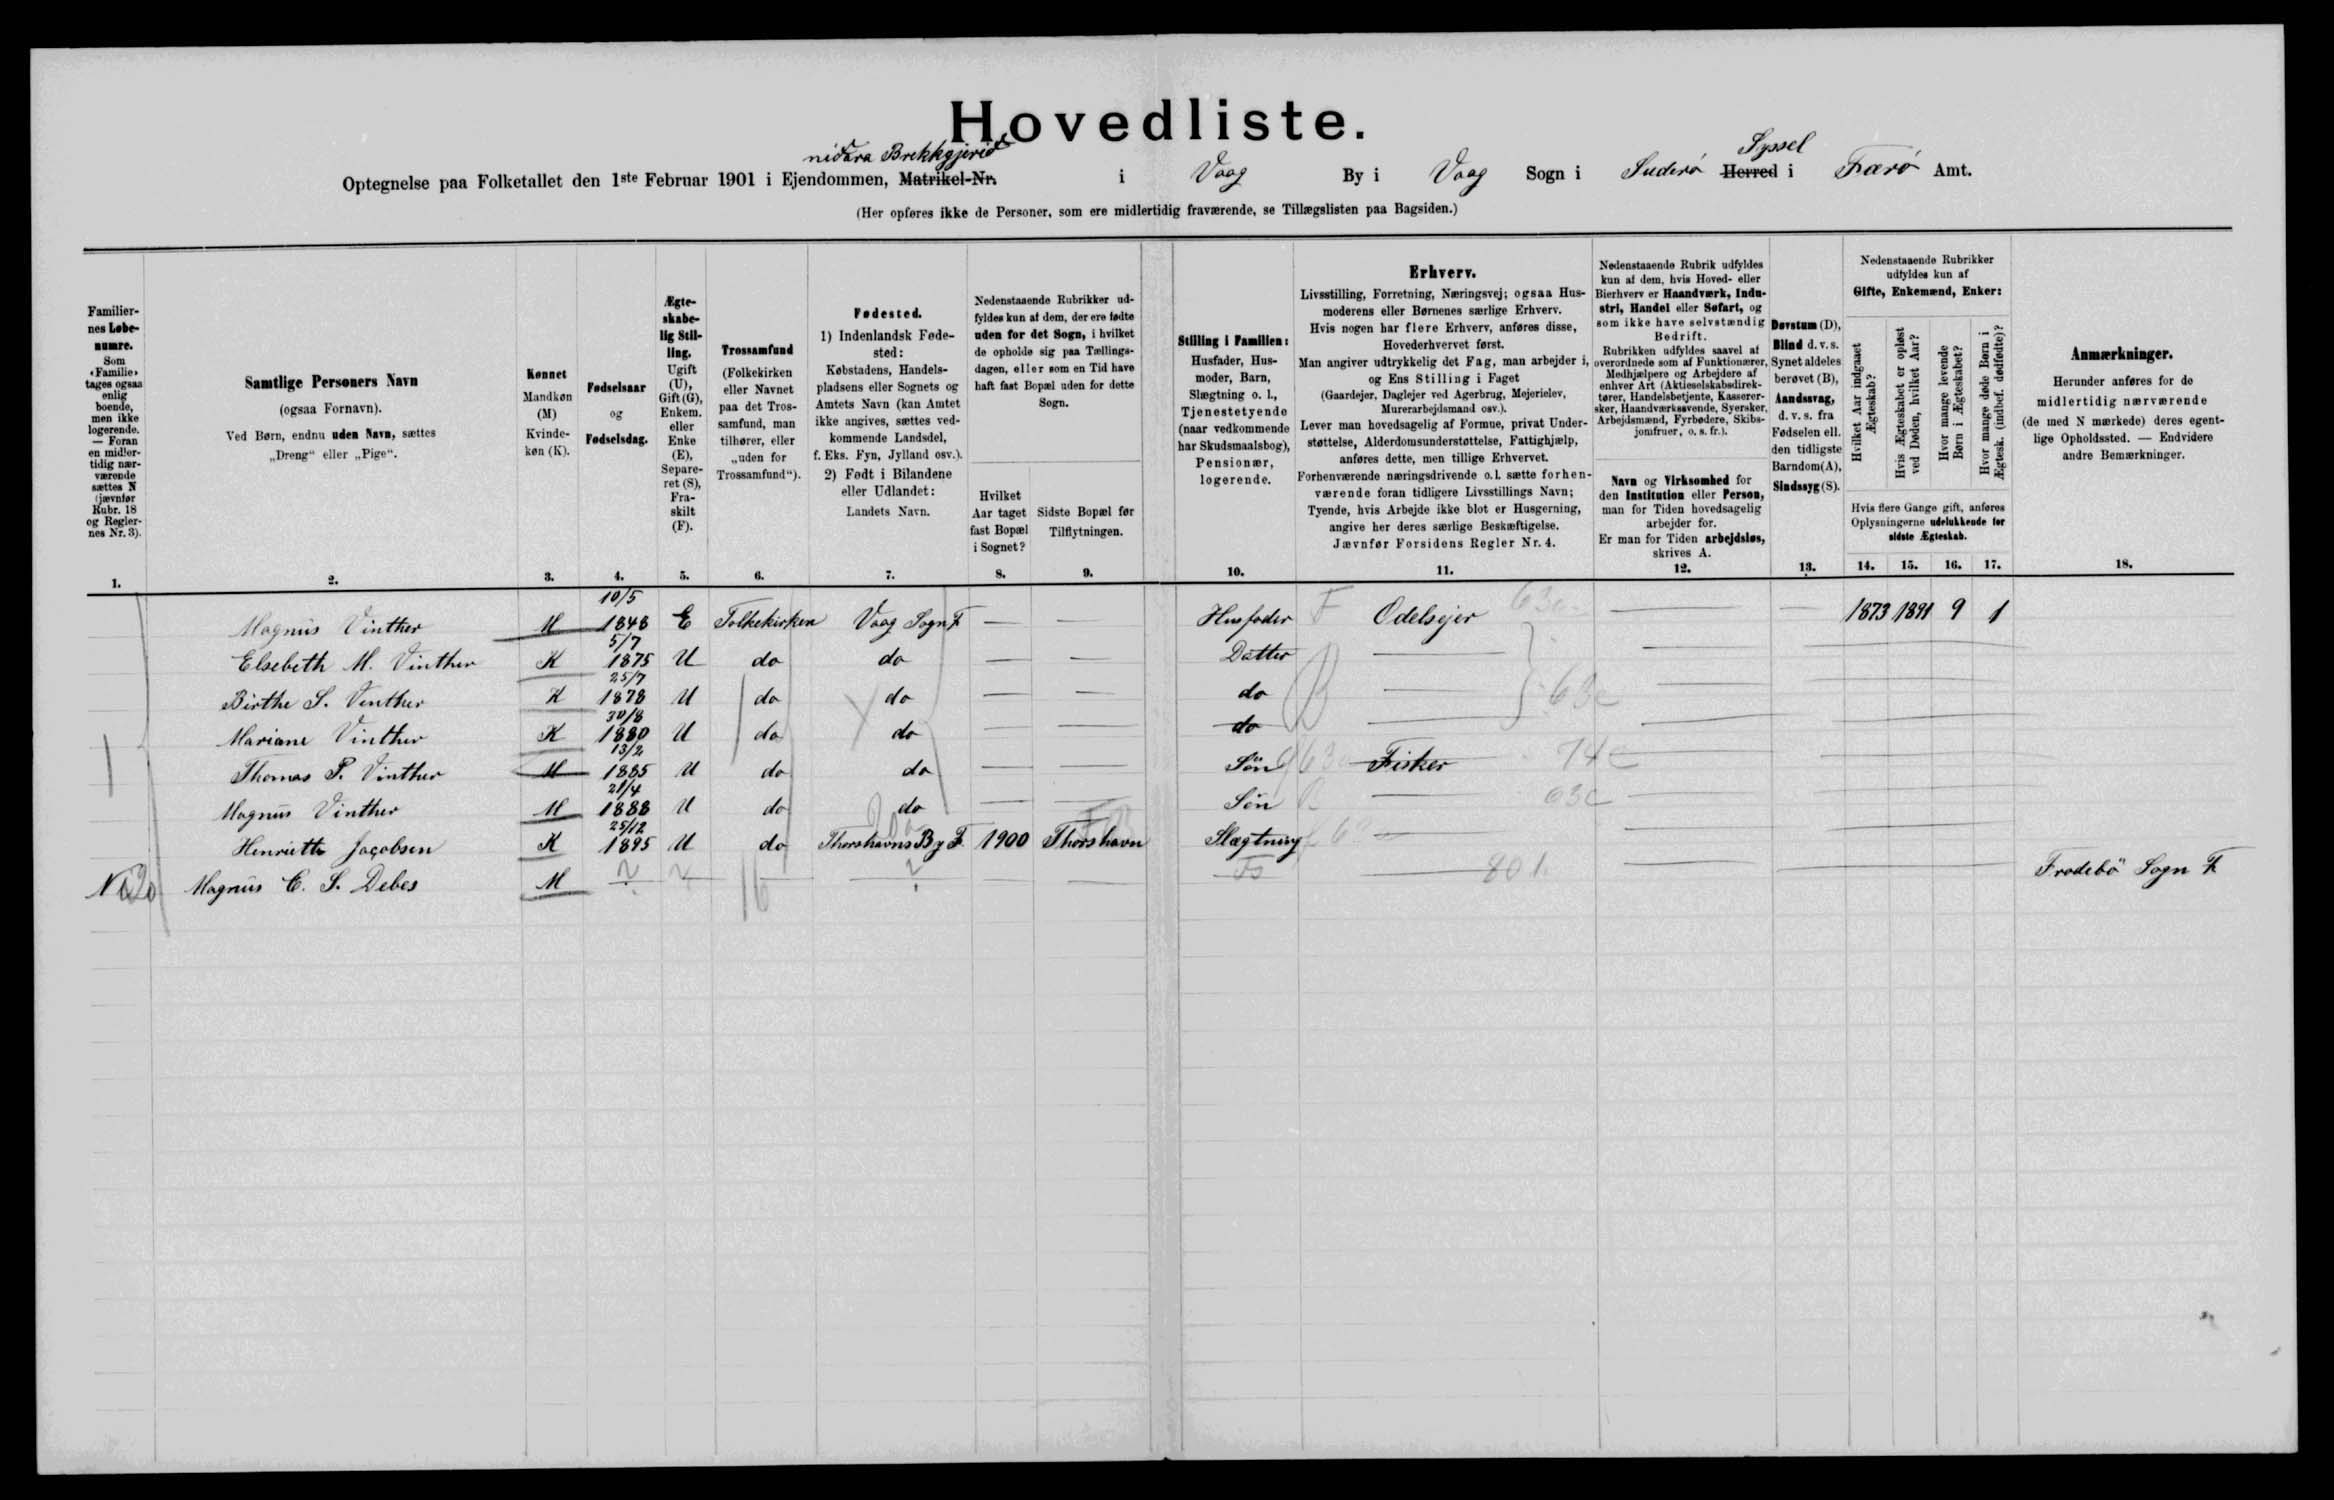 Hovedliste.
niðara Brekkgjerið Syssel
Optegnelse paa Folketallet den 1ste Februar 1901 i Ejendommen, Matrikel-Nr. i Vaag By i Vaag Sogn i Suderø Herred i Færø Amt.
(Her opføres ikke de Personer, som ere midlertidig fraværende, se Tillægslisten paa Bagsiden.)
Familier-
nes Løbe-
numre.
Som
«Familie»
tages ogsaa
enlig
boende,
men ikke
logerende.
— Foran
en midler-
tidig nær-
værende
sættes N
(jævnfør
Rubr. 18
og Regler-
nes Nr. 3).
1.
Samtlige Personers Navn
(ogsaa Fornavn).
Ved Børn, endnu uden Navn, sættes
„Dreng“ eller „Pige“.
2.
Kønnet
Mandkøn
(M)
Kvinde-
køn (K).
3.
Fødselsaar
og
Fødselsdag.
4.
Ægte-
skabe-
lig Stil-
ling.
Ugift
(U),
Gift (G),
Enkem.
eller
Enke
(E),
Separe-
ret (S),
Fra-
skilt
(F).
5.
Trossamfund
(Folkekirken
eller Navnet
paa det Tros-
samfund, man
tilhører, eller
„uden for
Trossamfund“).
6.
Fødested.
1) Indenlandsk Føde-
sted:
Købstadens, Handels-
pladsens eller Sognets og
Amtets Navn (kan Amtet
ikke angives, sættes ved-
kommende Landsdel,
f. Eks. Fyn, Jylland osv.).
2) Født i Bilandene
eller Udlandet:
Landets Navn.
7.
Nedenstaaende Rubrikker ud-
fyldes kun af dem, der ere fødte
uden for det Sogn, i hvilket
de opholde sig paa Tællings-
dagen, eller som en Tid have
haft fast Bopæl uden for dette
Sogn.
Hvilket
Aar taget
fast Bopæl
i Sognet?
8.
Sidste Bopæl før
Tilflytningen.
9.
Stilling i Familien:
Husfader, Hus-
moder, Barn,
Slægtning o. l.,
Tjenestetyende
(naar vedkommende
har Skudsmaalsbog),
Pensionær,
logerende.
10.
Erhverv.
Livsstilling, Forretning, Næringsvej; ogsaa Hus-
moderens eller Børnenes særlige Erhverv.
Hvis nogen har flere Erhverv, anføres disse,
Hovederhvervet først.
Man angiver udtrykkelig det Fag, man arbejder i,
og Ens Stilling i Faget
(Gaardejer, Daglejer ved Agerbrug, Mejerielev,
Murerarbejdsmand osv.).
Lever man hovedsagelig af Formue, privat Under-
støttelse, Alderdomsunderstøttelse, Fattighjælp,
anføres dette, men tillige Erhvervet.
Forhenværende næringsdrivende o.l. sætte forhen-
værende foran tidligere Livsstillings Navn;
Tyende, hvis Arbejde ikke blot er Husgerning,
angive her deres særlige Beskæftigelse.
Jævnfør Forsidens Regler Nr. 4.
11.
Nedenstaaende Rubrik udfyldes
kun af dem, hvis Hoved- eller
Bierhverv er Haandværk, Indu-
stri, Handel eller Søfart, og
som ikke have selvstændig
Bedrift.
Rubrikken udfyldes saavel af
overordnede som af Funktionærer,
Medhjælpere og Arbejdere af
enhver Art (Aktieselskabsdirek-
tører, Handelsbetjente, Kasserer-
sker, Haandværkssvende, Syersker,
Arbejdsmænd, Fyrbødere, Skibs-
jomfruer, o. s. fr.).
Navn og Virksomhed for
den Institution eller Person,
man for Tiden hovedsagelig
arbejder for.
Er man for Tiden arbejdsløs,
skrives A.
12.
Døvstum (D),
Blind d. v. s.
Synet aldeles
berøvet (B),
Aandssvag,
d. v. s. fra
Fødselen ell.
den tidligste
Barndom (A),
Sindssyg (S).
13.
Nedenstaaende Rubrikker
udfyldes kun af
Gifte, Enkemænd, Enker:
Hvilket Aar indgaaet
Ægteskab?
Hvis Ægteskabet er opløst
ved Døden, hvilket Aar?
Hvor mange levende
Børn i Ægteskabet?
Hvor mange døde Børn i
Ægtesk. (indbef. dødfødte)?
Hvis flere Gange gift, anføres
Oplysningerne udelukkende for
sidste Ægteskab.
14. 15. 16. 17.
Anmærkninger.
Herunder anføres for de
midlertidig nærværende
(de med N mærkede) deres egent-
lige Opholdssted. — Endvidere
andre Bemærkninger.
18.
Magnus Vinther M 10/5 1848 E Folkekirken Vaag Sogn F. — — Husfader Odelsejer — — 1873 1891 9 1
Elsebeth M. Vinther K 5/7 1875 U do do — — Datter — —
Birthe S. Vinther K 25/7 1878 U do do — — do — 63c —
Mariane Vinther K 30/8 1880 U do do — — do — —
Thomas P. Vinther M 13/2 1885 U do do — — Søn Fisker 74c —
Magnus Vinther M 21/4 1888 U do do — — Søn — 63c —
Henriette Jacobsen K 25/12 1895 U do Thorshavns By F. 1900 Thorshavn Slægtning — —
N Magnus E. S. Debes M ? ? — ? — — — 801 — Frodebö Sogn F.